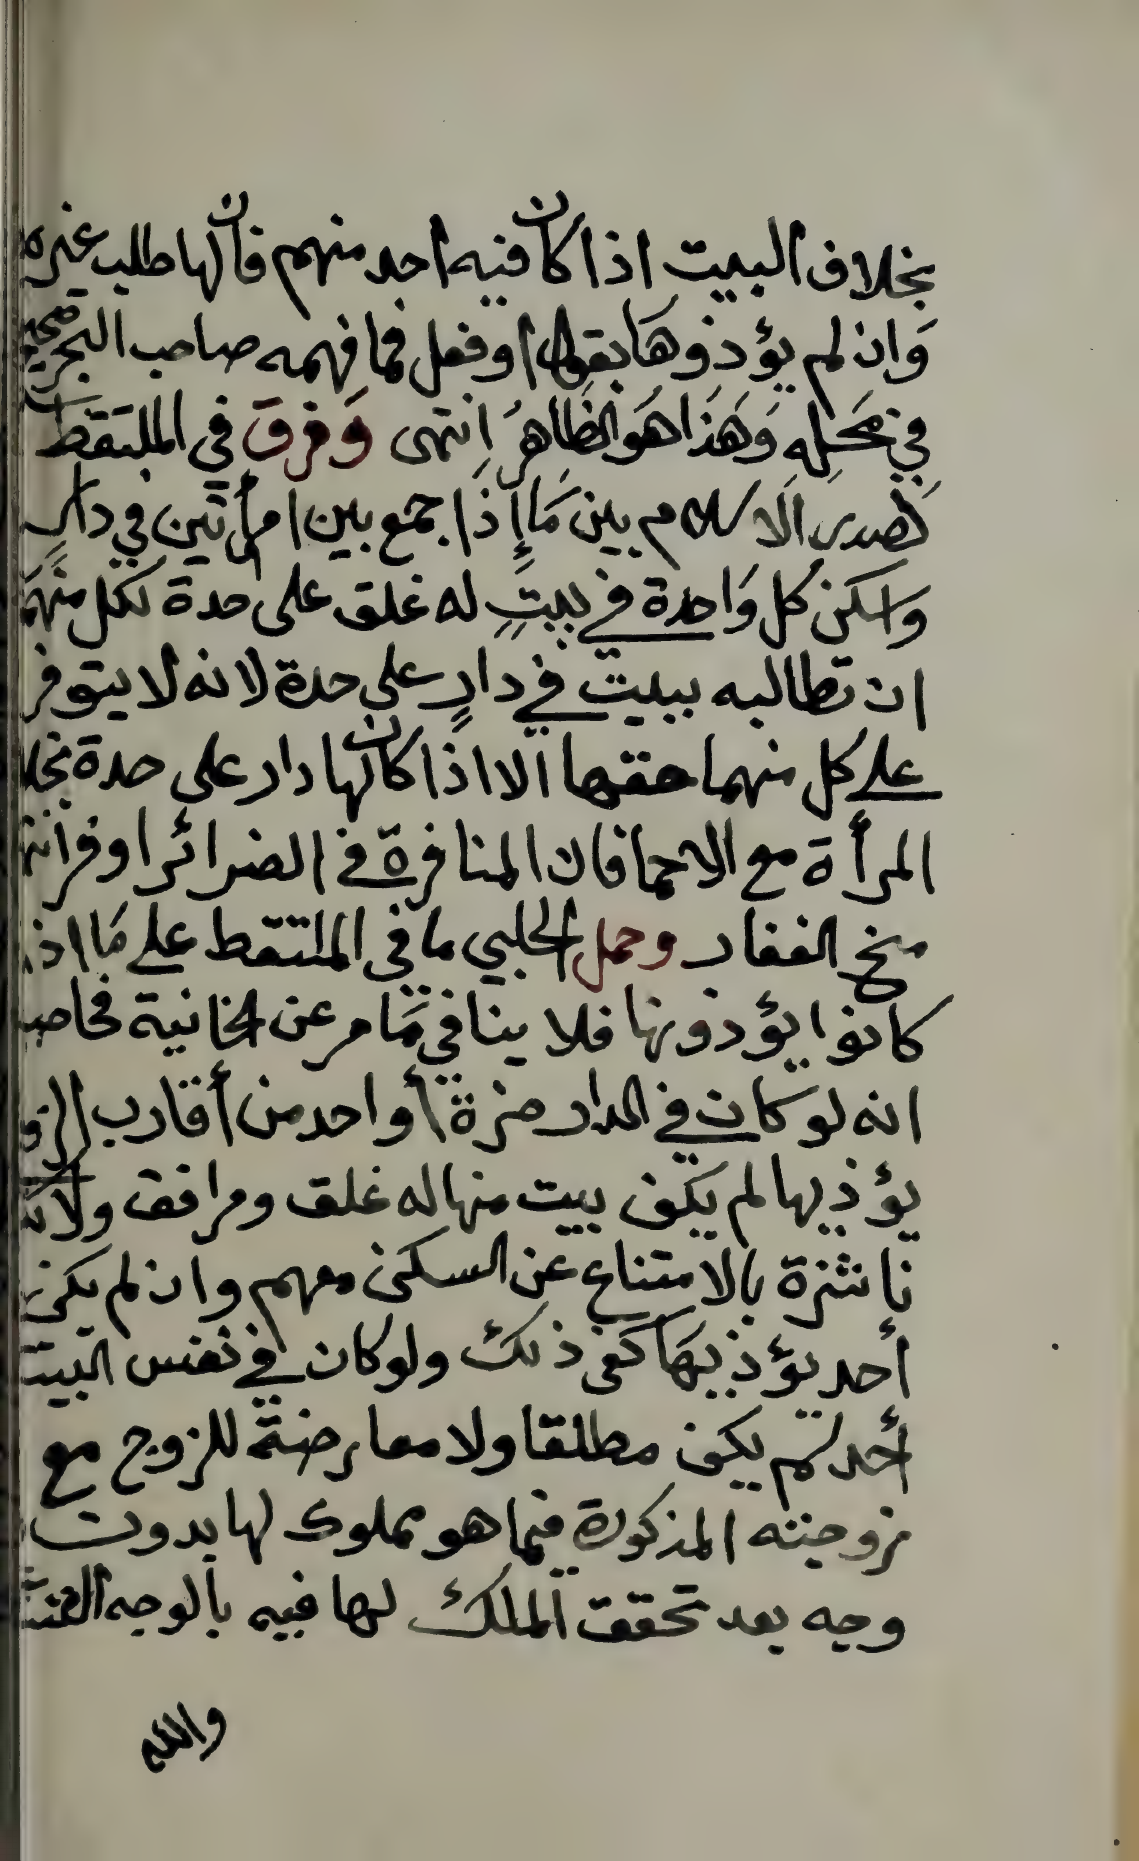 بخلاف البيت اذا كان فيه احد منهم فان لها طلب غيره
وَان لم يؤذوهَا بقول او فعل فما فهمه صاحب البحر صحيح
في مَحَلِهِ وَهَذَا هَوَ الظَاهرُ اِنتهى وَفرقَ في الملتقط
لصدر الاسلام بين مَا إِذَا جمع بين امرأتين في دار
وَاسكن كُل وَاحدة في بيتٍ له غلق على حدة لكل منهمَا
ان تطالبه ببيت في دارٍ على حدة لانه لا يتوفر
على كل منهما حقها الا اذا كان لها دار على حدة بخلاف
المرأة مع الاحما فان المنافرة في الضرائر اوفر انتهى
منح الغفار وحمل الحلبي ما في الملتقط على مَا اذا
كانوا يؤذونها فلا ينافي مَا مر عن الخانية فحاصله
انه لو كان في الدار ضرة أو احد من أقارب الزوج
يؤذيها لم يكف بيت منها له غلق ومرافق ولا تكون
ناشزة بالامتناع عن السكنى معهم وان لم يكن
أحد يؤذيهَا كفى ذلك ولو كان في نفس البيت
أحد لم يكف مطلقا ولا معارضة للزوج مع
زوجته المذكورة فيما هو مملوك لها بدون
وجه بعد تحقق الملك لها فيه بالوجه
والله